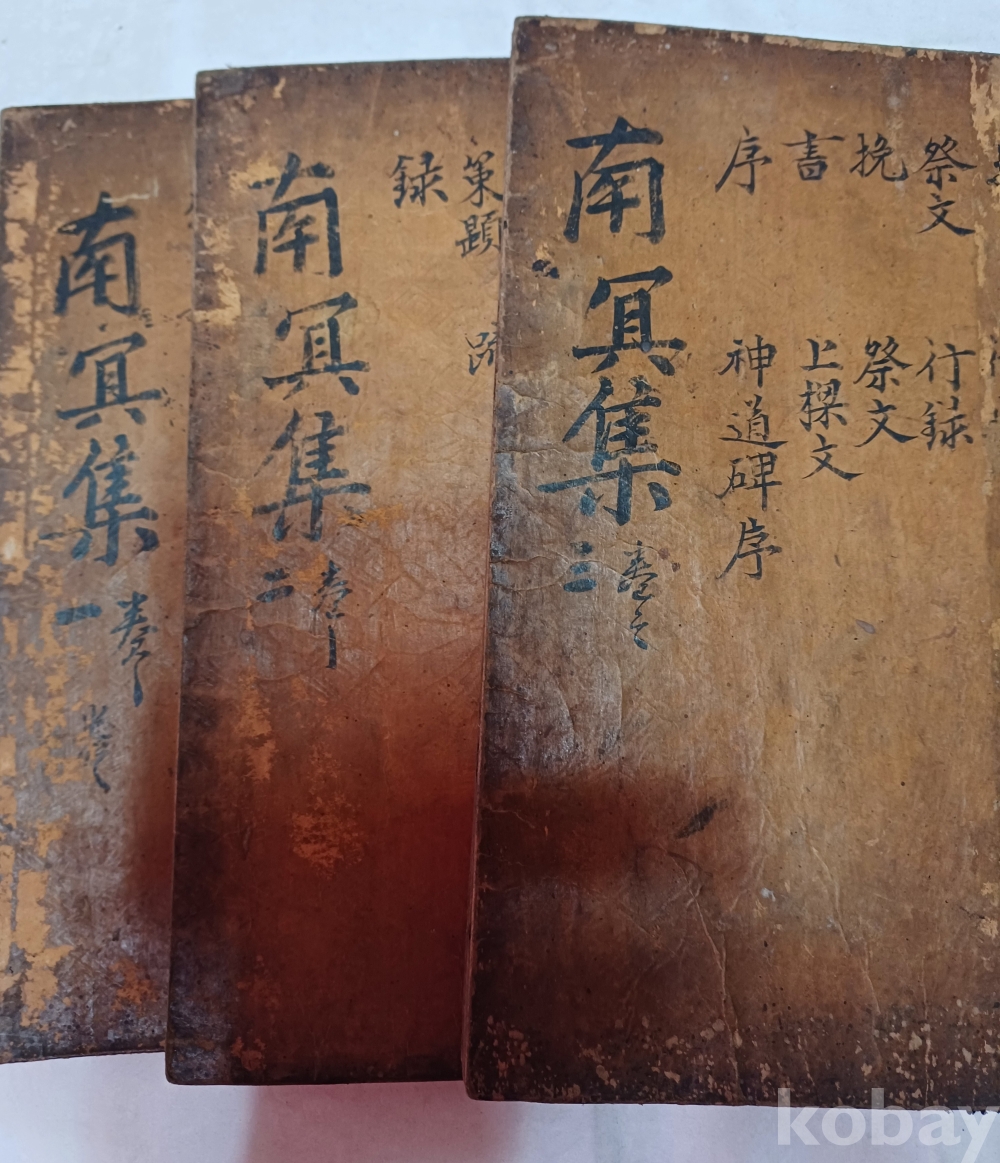 南冥集 一
南冥集 二
策題
疏
録
南冥集 三
祭文
行録
挽
祭文
書
上樑文
序
神道碑序
kobay